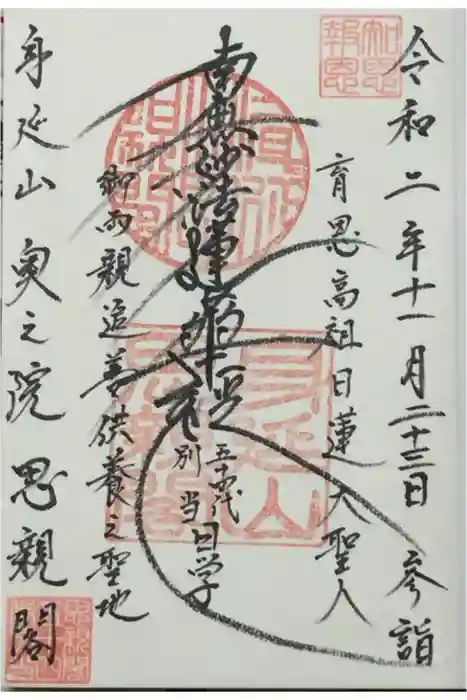 令和二年十一月二十三日 参詣
知恩報恩
育恩高祖日蓮大聖人
南無妙法蓮華経
五十四代
別当日学
御両親追善供養之聖地
身延山
身延山奥之院思親閣